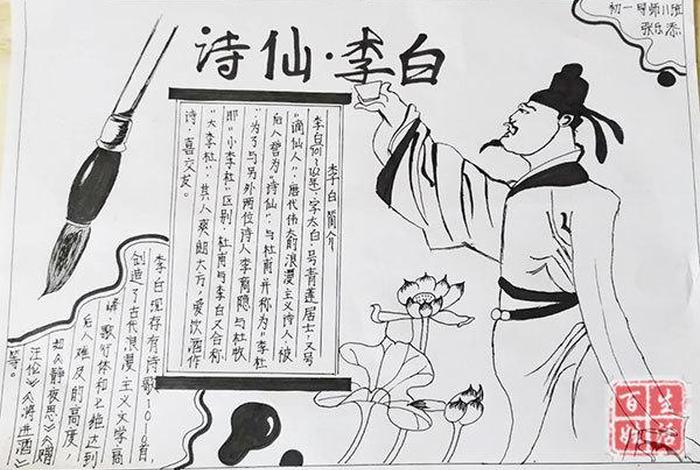 诗仙·李白
初一导师八班
张乐添
李白简介
李白(701~762年),字太白,号青莲居士,又号
“谪仙人”,唐代伟大的浪漫主义诗人,被
后人誉为“诗仙”,与杜甫并称为“李杜
”为了与另外两位诗人李商隐与杜牧
即“小李杜”区别,杜甫与李白又合称
“大李杜”,其人爽朗大方,爱饮酒作
诗,喜交友。
李白现存有诗歌1010首,
创造了古代浪漫主义文学高
峰,歌行体和七绝达到
后人难及的高度,
如《静夜思》《赠
汪伦》《将进酒》
等。
百姓生活